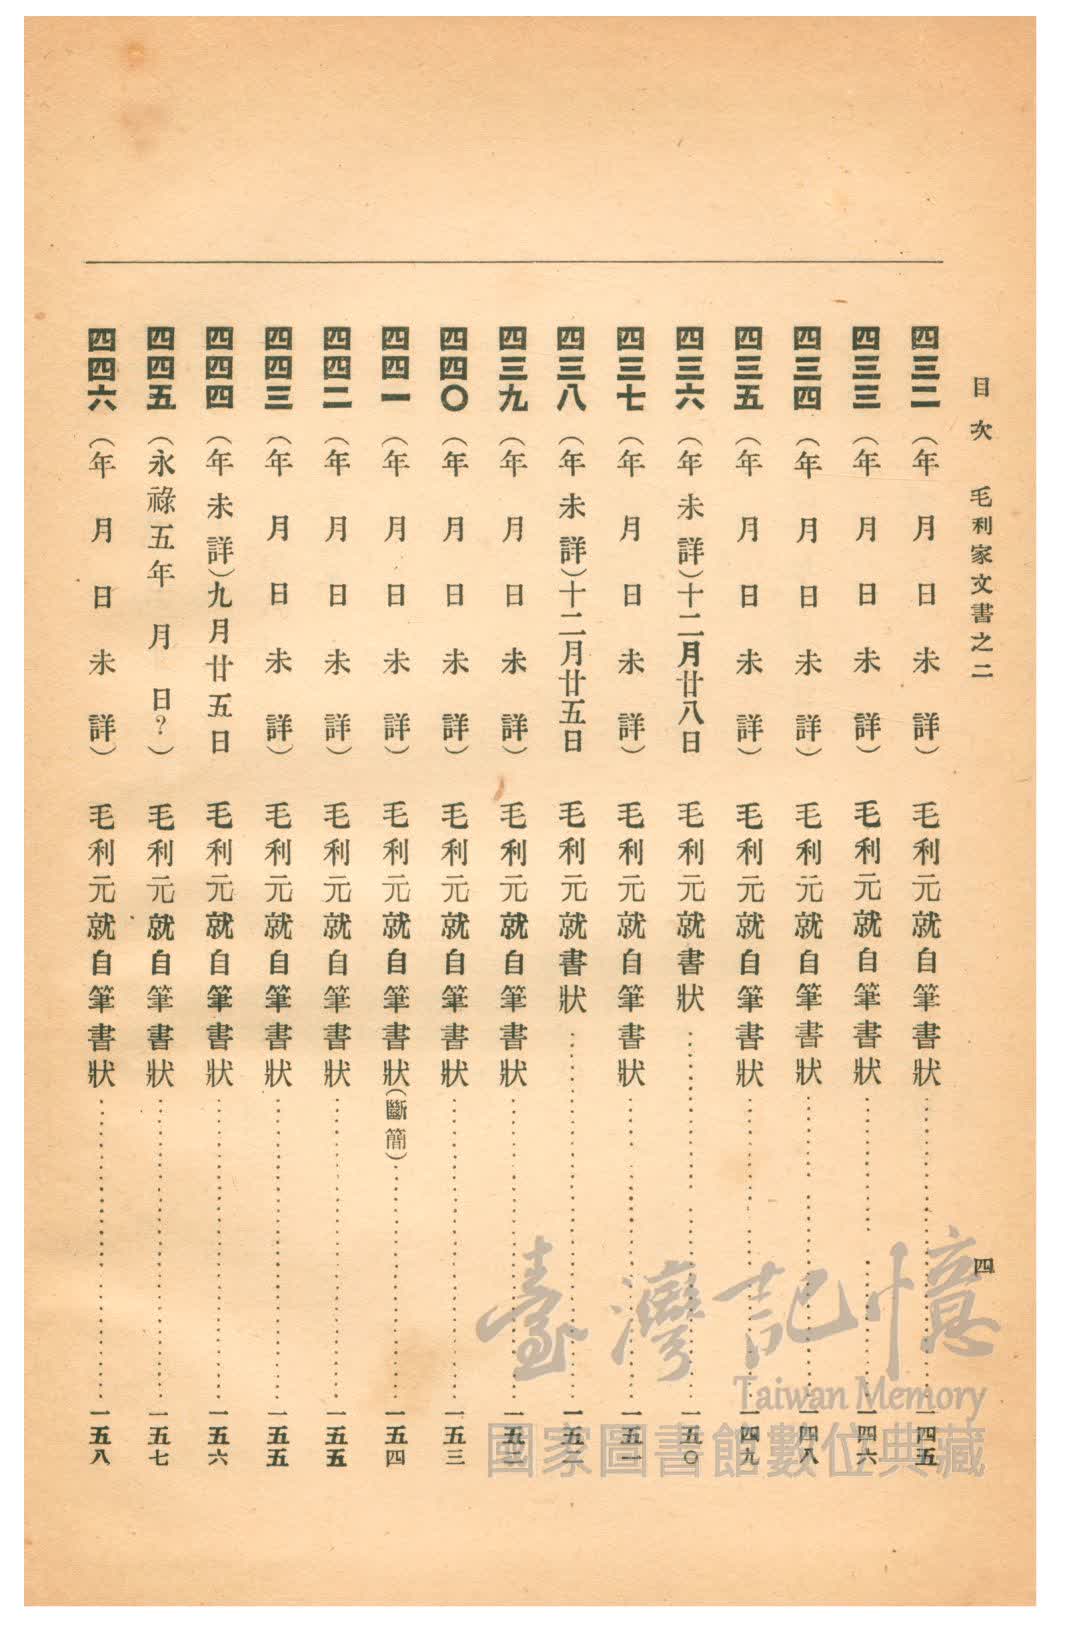 目次 毛利家文書之二 四
四三二 (年月日未詳) 毛利元就自筆書狀……一四五
四三三 (年月日未詳) 毛利元就自筆書狀……一四六
四三四 (年月日未詳) 毛利元就自筆書狀……一四八
四三五 (年月日未詳) 毛利元就自筆書狀……一四九
四三六 (年未詳)十二月廿八日 毛利元就書狀……一五〇
四三七 (年月日未詳) 毛利元就自筆書狀……一五一
四三八 (年未詳)十二月廿五日 毛利元就書狀……一五二
四三九 (年月日未詳) 毛利元就自筆書狀……一五三
四四〇 (年月日未詳) 毛利元就自筆書狀……一五三
四四一 (年月日未詳) 毛利元就自筆書狀(斷簡)……一五四
四四二 (年月日未詳) 毛利元就自筆書狀……一五五
四四三 (年月日未詳) 毛利元就自筆書狀……一五五
四四四 (年未詳)九月廿五日 毛利元就自筆書狀……一五六
四四五 (永祿五年月日?) 毛利元就自筆書狀……一五七
四四六 (年月日未詳) 毛利元就自筆書狀……一五八
臺灣記憶
Taiwan Memory
國家圖書館數位典藏